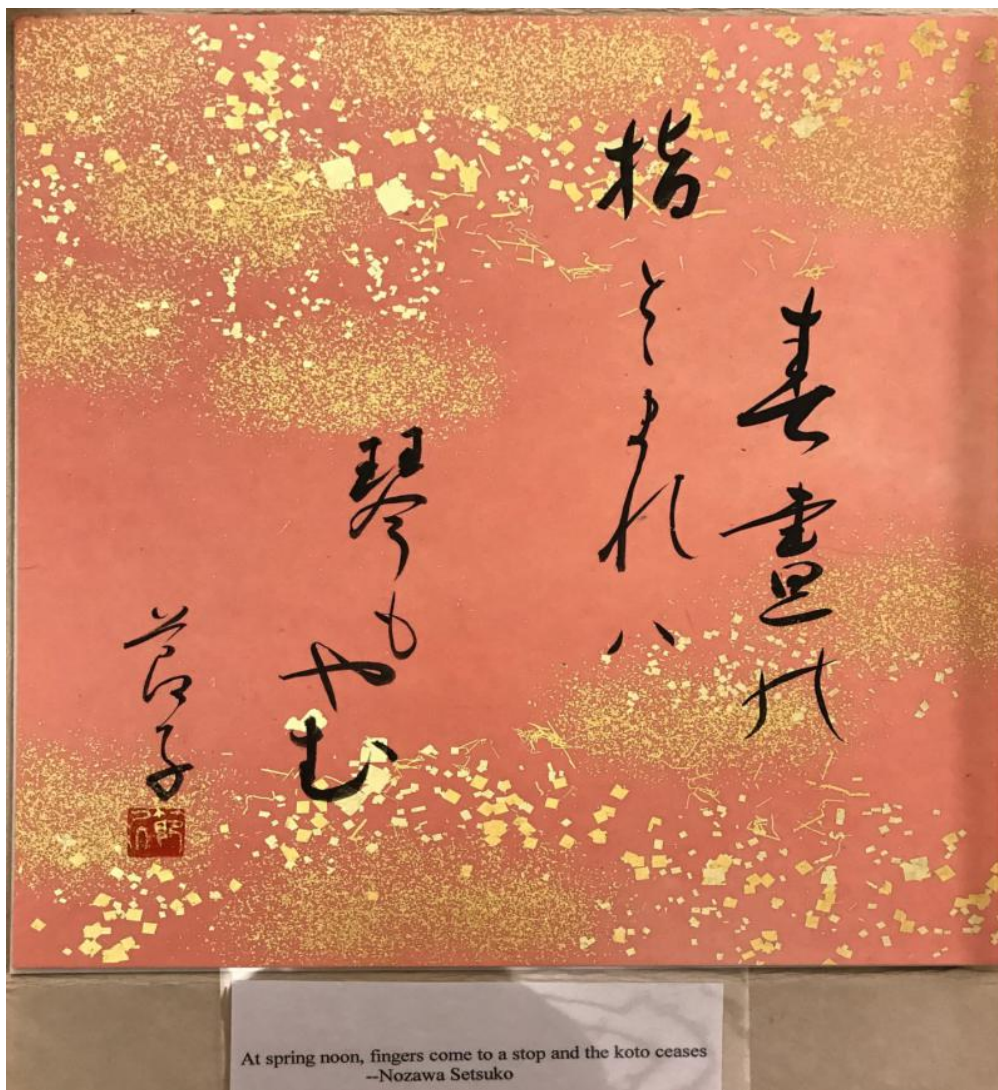 春晝の
指とまれハ
琴もやむ
節子
At spring noon, fingers come to a stop and the koto ceases
--Nozawa Setsuko